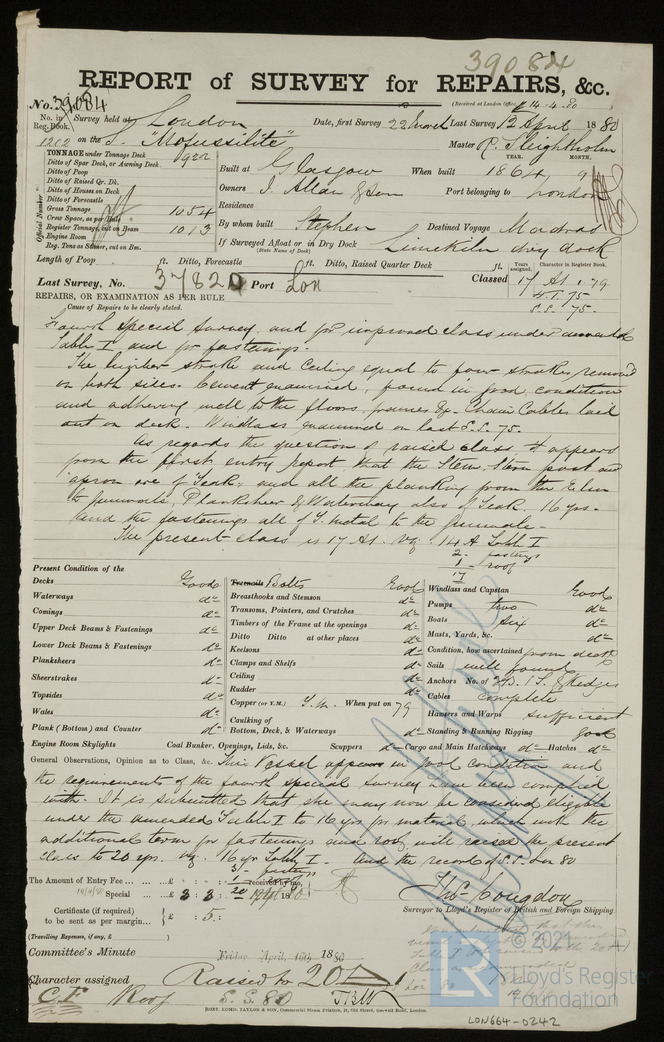 39084
REPORT of SURVEY for REPAIRS, &c.
(Received at London Office, 14.4.80
No. 39084
No. in Reg. Book. Survey held at London Date, first Survey 22 March Last Survey 12 April 1880
1202 on the S. "Mofussilite" Master R. Sleightholm
TONNAGE under Tonnage Deck 922
Ditto of Spar Deck, or Awning Deck
Ditto of Poop
Ditto of Raised Qr. Dk.
Ditto of Houses on Deck
Ditto of Forecastle
Gross Tonnage 1054
Crew Space, as per Rule
Register Tonnage, cut on Beam 1013
Engine Room
Reg. Tons as Steamer, cut on Bm.
Official Number
YEAR. MONTH.
Built at Glasgow When built 1864 9
Owners J. Allan & Son Port belonging to London
Residence
By whom built Stephen Destined Voyage Madras
If Surveyed Afloat or in Dry Dock Limekiln dry dock
(State Name of Dock)
Length of Poop ft. Ditto, Forecastle ft. Ditto, Raised Quarter Deck ft.
Last Survey, No. 37820 Port Lon
Classed Years assigned. Character in Register Book.
17 A1. 79
S.S. 75.
REPAIRS, OR EXAMINATION AS PER RULE
Cause of Repairs to be clearly stated.
Fourth Special Survey, and for improved class under amended
Table I and for fastenings.
The higher strake and Ceiling equal to four strakes removed
on both sides. Cement examined, found in good condition
and adhering well to the floors, frames &c. Chain Cables laid
out on deck. Windlass examined on last S.S. 75.
As regards the question of raised class it appears
from the first entry report that the Stem, Stern post and
apron are of Teak, and all the planking from the Elm
to gunwale, Plankshear & Waterway also of Teak. 16 yrs.
And the fastenings all of Y. metal to the gunwale.
The present class is 17 A1. viz. 14 A Table I
2 - fastngs
1 - roof
17
Present Condition of the
Decks Good
Waterways do
Comings do
Upper Deck Beams & Fastenings do
Lower Deck Beams & Fastenings do
Planksheers do
Sheerstrakes do
Topsides do
Wales do
Plank (Bottom) and Counter do
Engine Room Skylights
Treenails Bolts Good
Breasthooks and Stemson do
Transoms, Pointers, and Crutches do
Timbers of the Frame at the openings do
Ditto Ditto at other places do
Keelsons do
Clamps and Shelfs do
Ceiling do
Rudder do
Copper (or Y.M.) Y.M. When put on 79
Caulking of
Bottom, Deck, & Waterways do
Coal Bunker, Openings, Lids, &c. Scuppers do
Windlass and Capstan Good
Pumps two do
Boats six do
Masts, Yards, &c. do
Condition, how ascertained from deck
Sails well found
Anchors No. of 3 B. 1 S. & Kedges
Cables complete
Hawsers and Warps sufficient
Standing & Running Rigging good
Cargo and Main Hatchways do Hatches do
General Observations, Opinion as to Class, &c. This Vessel appears in good condition and
the requirements of the fourth special survey have been complied
with. It is submitted that she may now be considered eligible
under the amended Table I to 16 yrs for material, which with the
additional term for fastenings and roof, will raise the present
class to 20 yrs. viz. 16 yr Table I. And the record of S.S. Lon 80
3 - fastngs
1 - roof
20
The Amount of Entry Fee ... £ : : received by me,
Special ... £ 3 : 3 : 1880
Certificate (if required) to be sent as per margin... £ : 5 :
(Travelling Expenses, if any, £ )
Thos. Congdon
Surveyor to Lloyd's Register of British and Foreign Shipping
Committee's Minute Friday April, 16th 1880
Character assigned Raised to 20 A 1
C.F. Roof S.S. 80
© 2021
Lloyd's Register
Foundation
LR
ROBT. EDMD. TAYLOR & SON, Commercial Steam Printers, 19, Old Street, Goswell Road, London.
LON664-0242